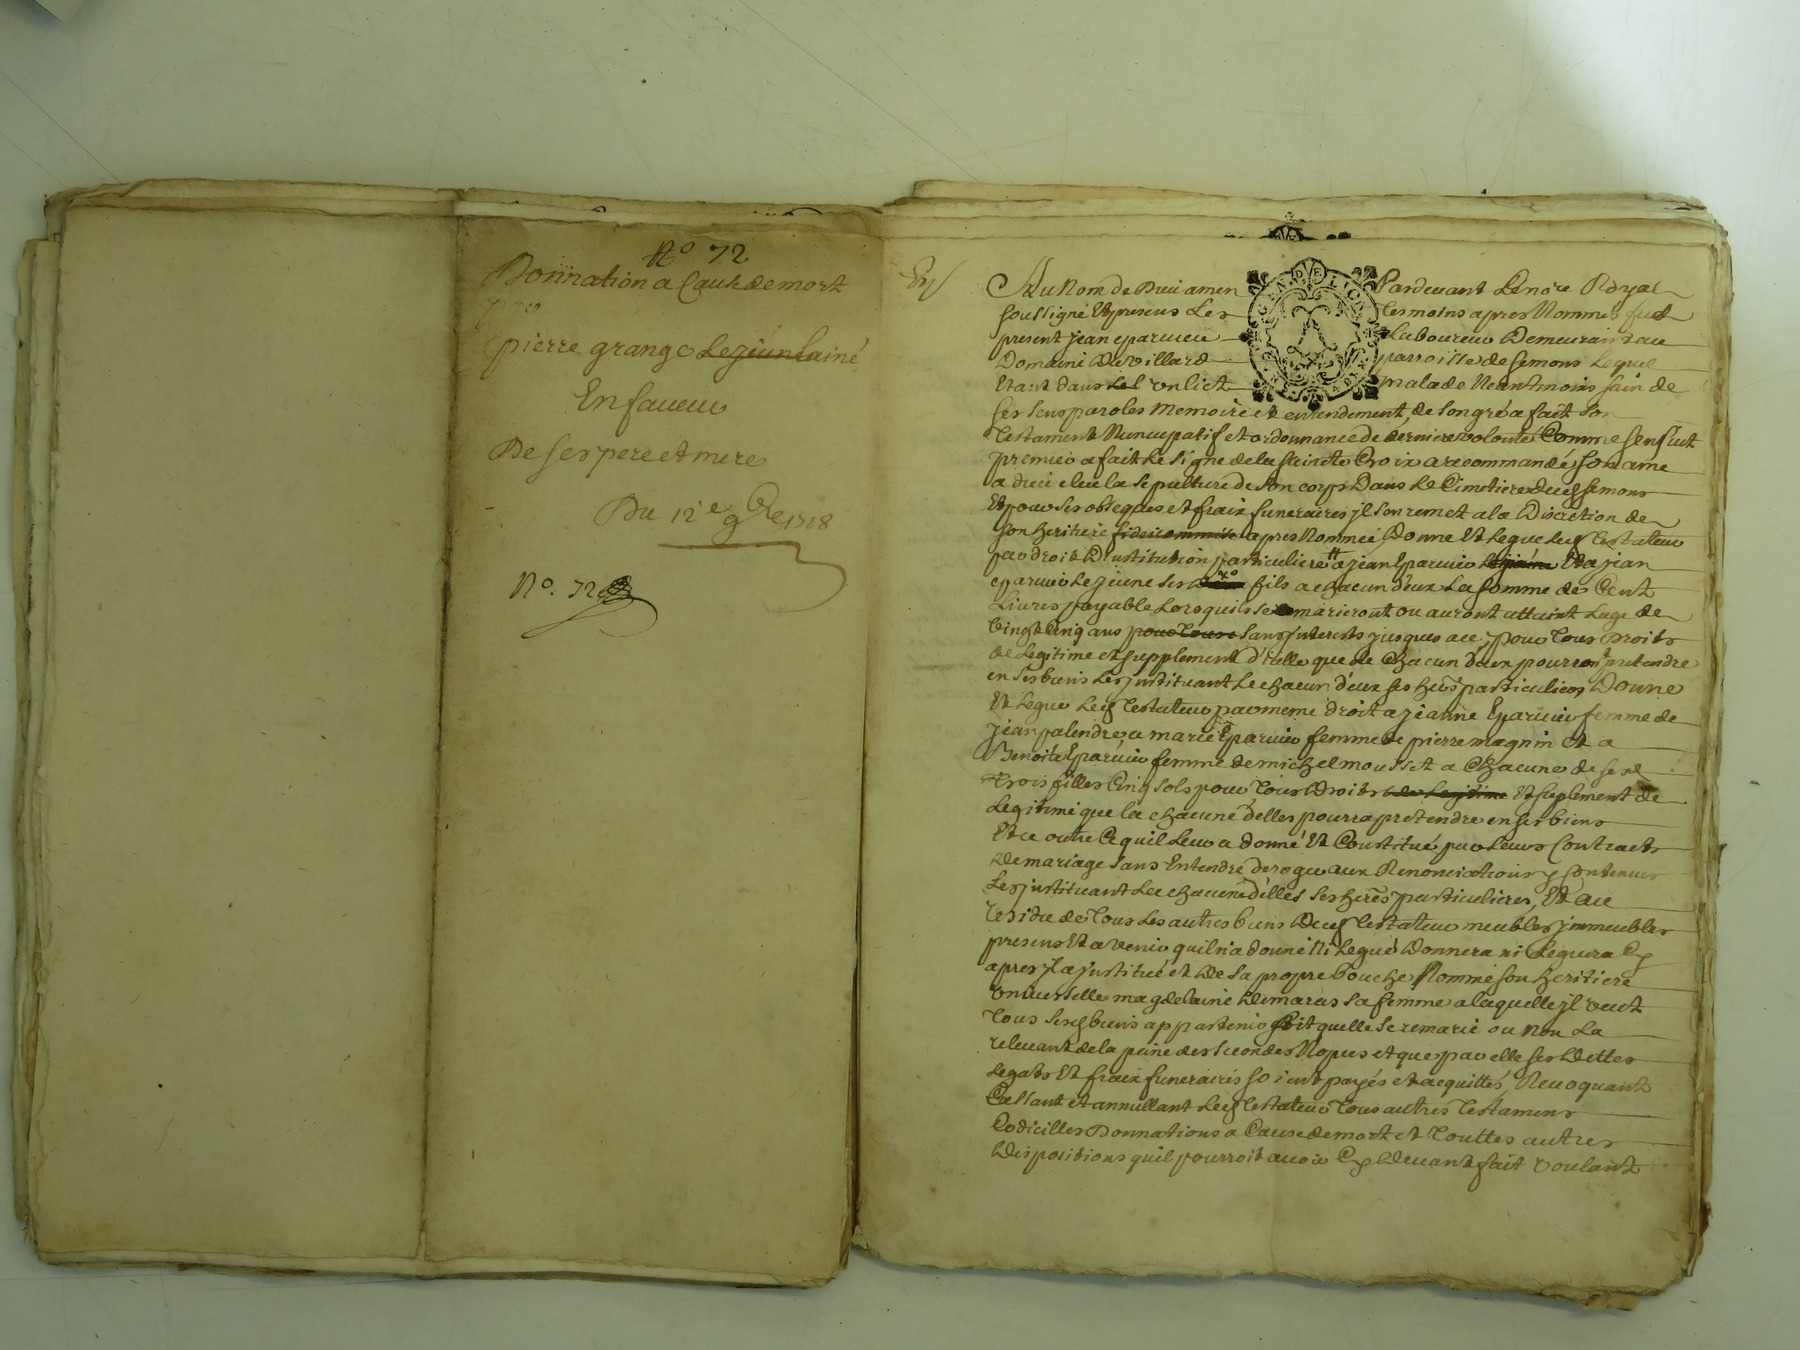 No 72
Donnation a Cause de mort
par
pierre grange Le jeun Lainé
En faveur
De ses pere et mere
Du 12e 9bre 1718
No. 72
Au Nom de Dieu amen Pardevant Lenore Royal
soussigné Et presens Les Tesmoins apres Nommés fut
present jean eparvier Laboureur Demeurant au
Domaine de villard parroisse de semons Lequel
Etant dans un lict malade Neantmoins sain de
ses sens paroles Memoire et entendement, de son gré a fait Son
Testament Nuncupatif et ordonnance de derniere volonté Comme sensuit
premier a fait Le signe de la saincte Croix a recommandé son ame
a dieu elu la sepulture de son corps Dans Le Cimetiere dud semons
Et pour ses obseques et fraix funeraires jl sen remet a la Discretion de
son heritiere fideicommise apres Nommée, Donne Et Legue Led Testateur
par droit D'institution particuliere a jean Eparvier Et a jean
eparvier Le jeune ses fils a chacun d'eux La somme de Cent
Livres payable Lorsquils se marieront ou auront attaint Lage de
Vingt Cinq ans pour tous sans jnterests jusques a ce, pour Tous Droits
de Legitime et supplement d'icelle que de Chacun d'eux pourront pretendre
en ses biens Les jnstituant Le chacun d'eux ses hers particuliers Donne
Et Legue Led Testateur par meme droit a jeanne Eparvier femme de
jean palendre a marie Eparvier femme de pierre magnin et a
Benoite Eparvier femme de michel mousset a Chacune de sesd
trois filles Cinq sols pour Tous Droits de Legitime Et suplement de
Legitime que la chacune d'elles pourra pretendre en ses biens
Et ce outre Ce quil Leur a donné Et Constitué par Leurs Contracts
de mariage sans Entendre deroger aux Renonciations y Contenues
Les jnstituant La chacune d'elles ses heres particulieres, Et au
residu de Tous Les autres biens Dud Testateur meubles jmmeubles
presens Et a venir quil n'a donné Ni Legué Donnera ni Leguera Cy
apres jl a jnstitué et de sa propre bouche Nommé son heritiere
universelle magdelaine demaras sa femme a laquelle jl veut
Tous sesd biens appartenir soit quelle se remarie ou Non La
relevant de la peine des secondes Nopces et que par elle ses Dettes
Legats Et fraix funeraires soient payés et acquittés, Revoquant
Cassant et annullant Led Testateur Tous autres Testamens
Codicilles Donnations a Cause de mort et Touttes autres
Dispositions quil pourroit avoir Cy devant fait voulant